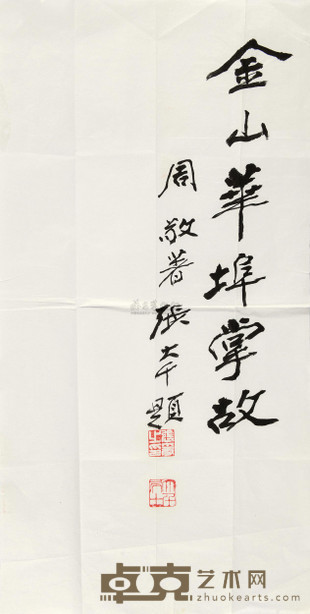 金山華埠掌故
周敬著張大千題
卓克艺术网
zhuokearts.com